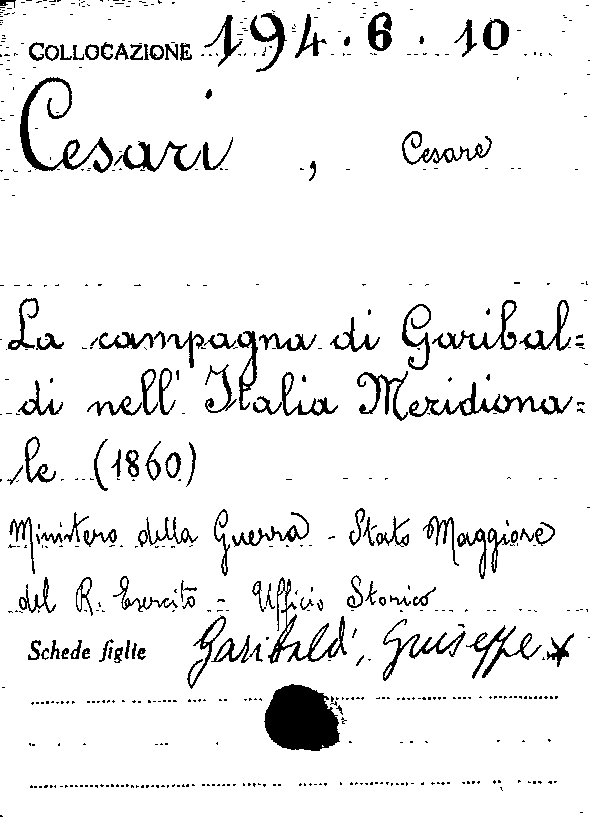 COLLOCAZIONE 194.6.10
Cesari, Cesare
La campagna di Garibal=
di nell' Italia Meridiona=
le (1860)
Ministero della Guerra - Stato Maggiore
del R. Esercito - Ufficio Storico
Schede figlie Garibaldi, Giuseppe *